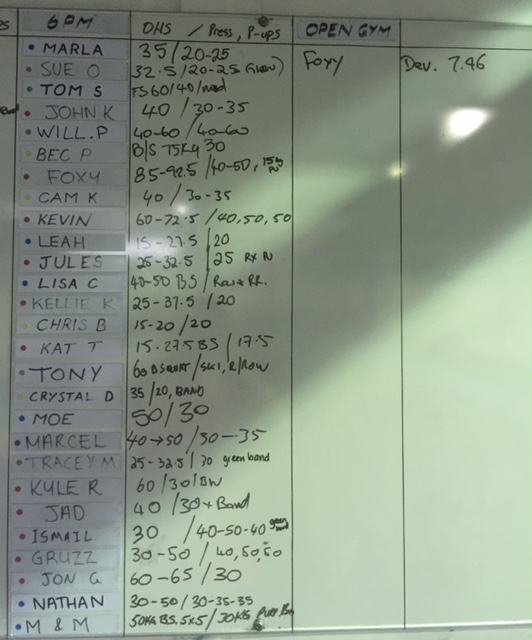 6PM OHS / Press, P-ups OPEN GYM
MARLA 35/20-25 Foxy Dev. 7.46
SUE O 32.5/20-25
TOM S FS60/40/
JOHN K 40 / 30-35
WILL.P 40-60 / 40-60
BEC P B/S 75Kg 30
FOXY 85-92.5 /40-50,
CAM K 40 / 30-35
KEVIN 60-72.5 /40,50,50
LEAH 15-27.5 | 20
JULES 25-32.5 | 25 RX
LISA C 40-50 BS / Row+
KELLIE K 25-37.5 / 20
CHRIS B 15-20/20
KAT T 15-27.5 BS / 17.5
TONY 60 B SQUAT / SKI, R/ROW
CRYSTAL D 35/20, BAND
MOE 50/30
MARCEL 40→50 /30-35
TRACEY M 25-32.5 | 20 green band
KYLE R 60 /30/BW
JAD 40 /30+Band
ISMAIL 30 /40-50-40 green band
GRUZZ 30-50 / 40,50,50
JON G 60-65 /30
NATHAN 30-50 / 30-35-35
M & M 50KG BS. 5x5 / 30KG